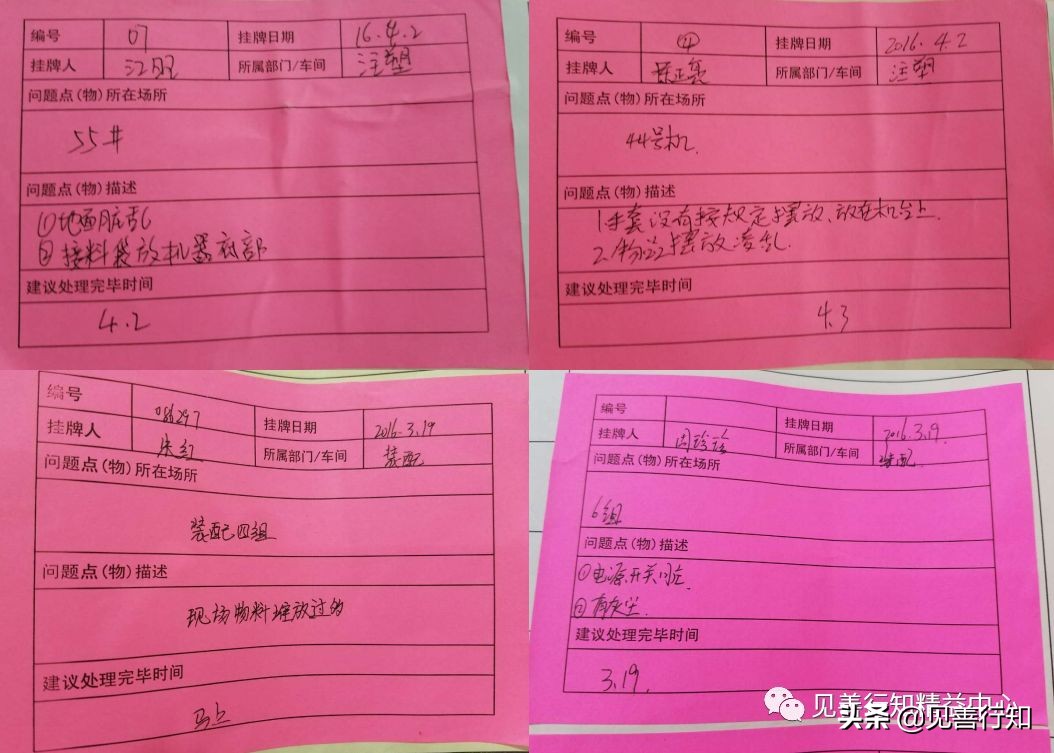 编号 07 挂牌日期 16.4.2
挂牌人 所属部门/车间 注塑
问题点(物)所在场所
55#
问题点(物)描述
①地面脏乱
②接料袋放机器底部
建议处理完毕时间
4.2
编号 ④ 挂牌日期 2016.4.2
挂牌人 所属部门/车间 注塑
问题点(物)所在场所
44号机.
问题点(物)描述
1.手套没有按规定摆放、放在机台上.
2.物品摆放凌乱.
建议处理完毕时间
4.3
编号 086297
挂牌日期 2016.3.19
挂牌人 朱红 所属部门/车间 装配
问题点(物)所在场所
装配四组
问题点(物)描述
现场物料堆放过多
建议处理完毕时间
马上
编号 挂牌日期 2016.3.19.
挂牌人 所属部门/车间 装配.
问题点(物)所在场所
6组
问题点(物)描述
①电源开关
②有灰尘.
建议处理完毕时间
3.19.
见善行知精益中心
头条 @见善行知